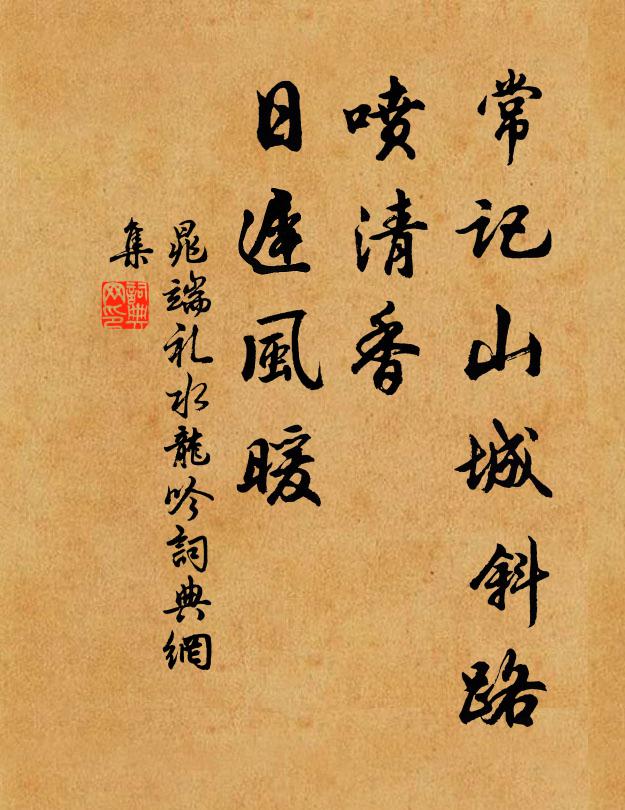 常记山城斜路
喷清香
日遲風暖
晁端礼水龍吟詞典網
集
詞典網印